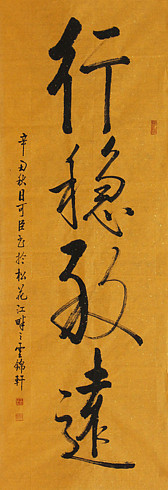 行穩致遠
辛丑秋月可臣書於松花江畔之雲錦軒